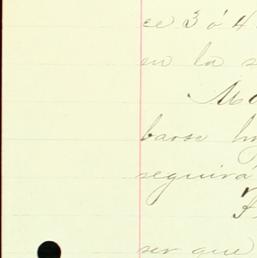 ce 3 ó 4
en la s
Mo
barse h
seguirá
ser que